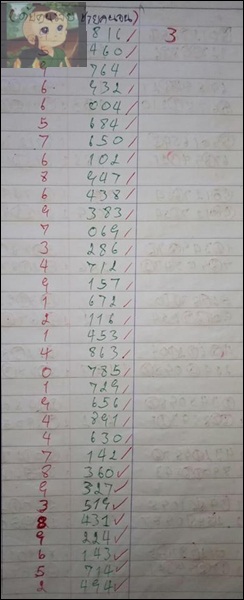 816 3
460
9 764
6 932
6 004
5 684
7 650
6 102
8 947
6 438
9 383
7 069
3 286
4 712
9 157
1 672
2 116
1 453
4 863
0 785
1 729
9 656
4 891
4 630
7 142
8 360
9 327
3 519
8 431
9 224
6 143
5 714
2 494